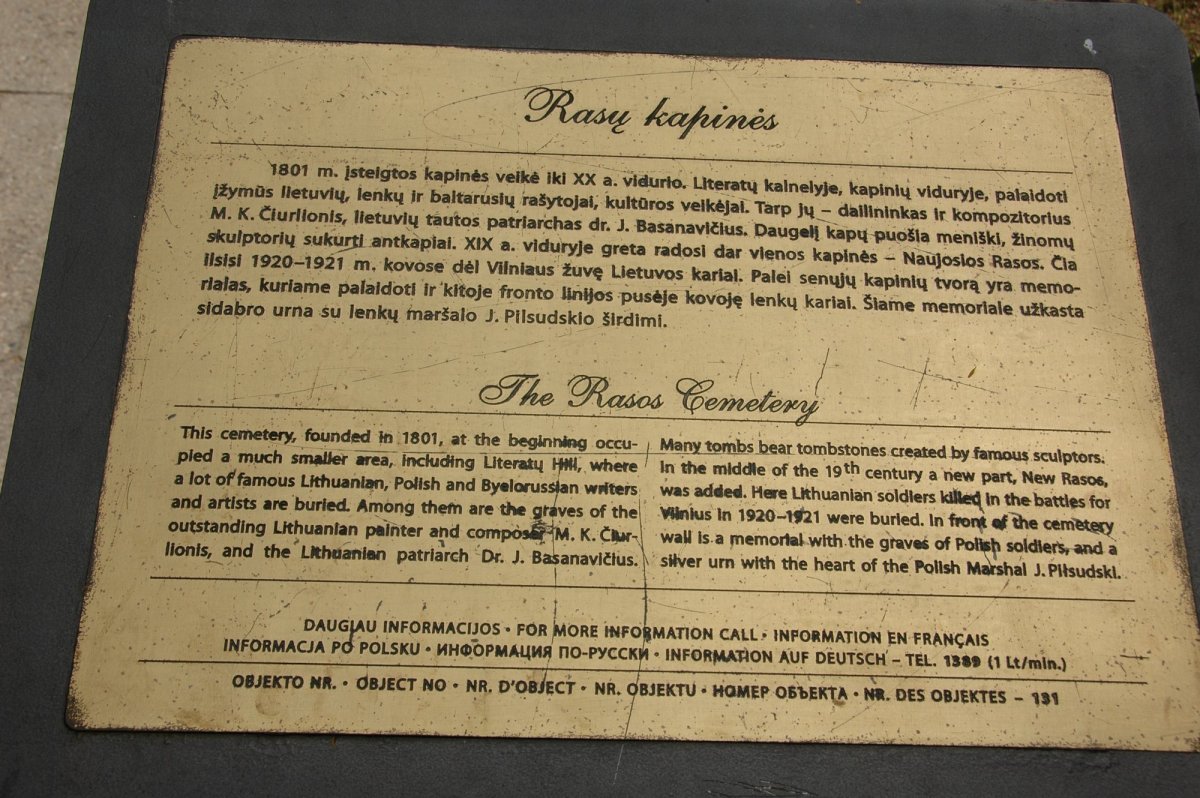 Rasų kapinės
1801 m. įsteigtos kapinės veikė iki XX a. vidurio. Literatų kalnelyje, kapinių viduryje, palaidoti
įžymūs lietuvių, lenkų ir baltarusių rašytojai, kultūros veikėjai. Tarp jų – dailininkas ir kompozitorius
M. K. Čiurlionis, lietuvių tautos patriarchas dr. J. Basanavičius. Daugelį kapų puošia meniški, žinomų
skulptorių sukurti antkapiai. XIX a. viduryje greta radosi dar vienos kapinės – Naujosios Rasos. Čia
ilsisi 1920–1921 m. kovose dėl Vilniaus žuvę Lietuvos kariai. Palei senųjų kapinių tvorą yra memo-
rialas, kuriame palaidoti ir kitoje fronto linijos pusėje kovoję lenkų kariai. Šiame memoriale užkasta
sidabro urna su lenkų maršalo J. Pilsudskio širdimi.
The Rasos Cemetery
This cemetery, founded in 1801, at the beginning occu-
pied a much smaller area, including Literatų Hill, where
a lot of famous Lithuanian, Polish and Byelorussian writers
and artists are buried. Among them are the graves of the
outstanding Lithuanian painter and composer M. K. Čiur-
lionis, and the Lithuanian patriarch Dr. J. Basanavičius.
Many tombs bear tombstones created by famous sculptors.
In the middle of the 19th century a new part, New Rasos,
was added. Here Lithuanian soldiers killed in the battles for
Vilnius in 1920–1921 were buried. In front of the cemetery
wall is a memorial with the graves of Polish soldiers, and a
silver urn with the heart of the Polish Marshal J. Piłsudski.
DAUGIAU INFORMACIJOS · FOR MORE INFORMATION CALL · INFORMATION EN FRANÇAIS
INFORMACJA PO POLSKU · ИНФОРМАЦИЯ ПО-РУССКИ · INFORMATION AUF DEUTSCH – TEL. 1389 (1 Lt/min.)
OBJEKTO NR. · OBJECT NO · NR. D'OBJECT · NR. OBJEKTU · НОМЕР ОБЪЕКТА · NR. DES OBJEKTES – 131